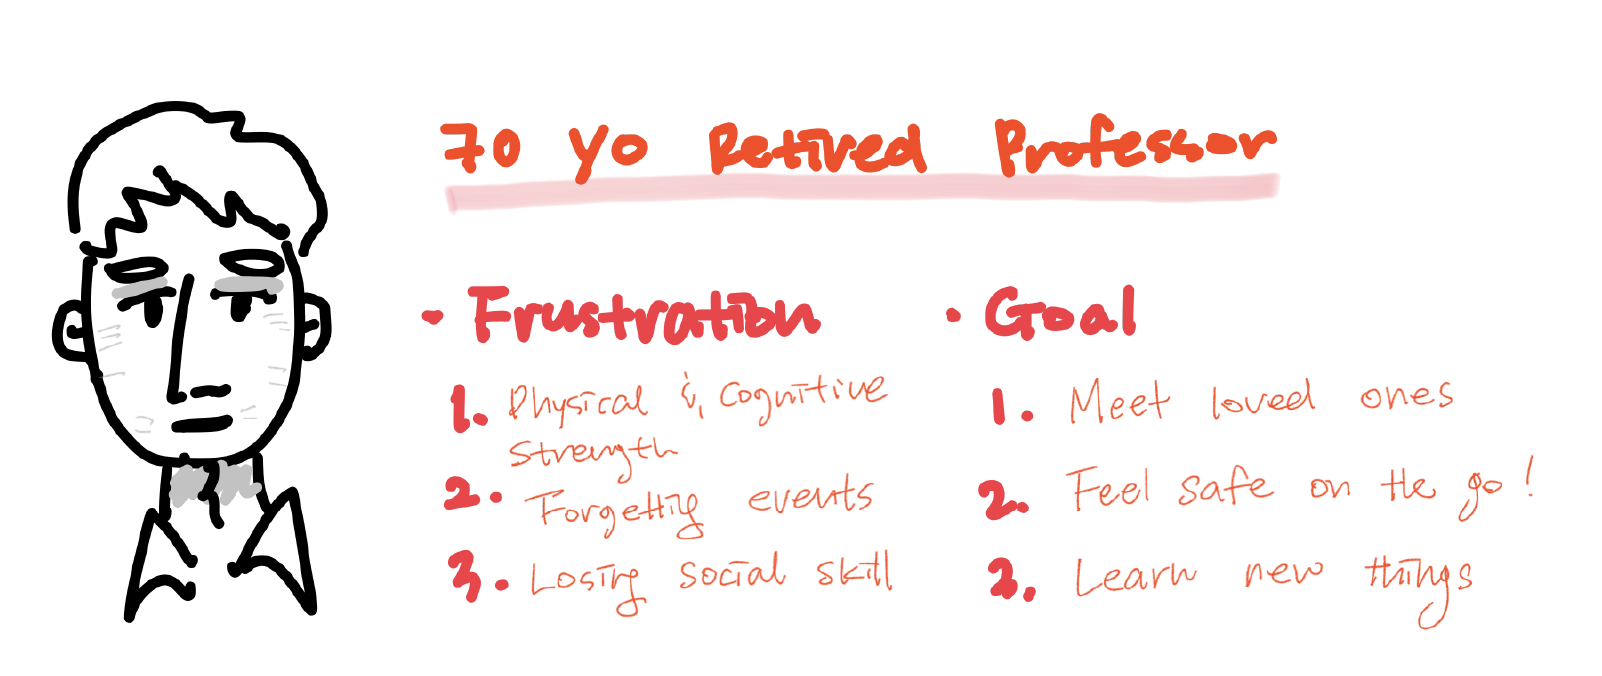 70 yo Retired Professor
• Frustration
1. Physical & Cognitive
strength
2. Forgetting events
3. Losing social skill
• Goal
1. Meet loved ones
2. Feel safe on the go!
3. Learn new things